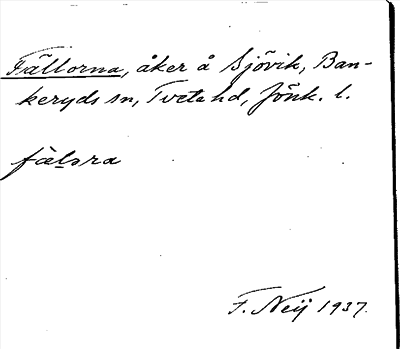 Fällorna, åker å Sjövik, Ban-
keryds sn, Tveta hd, Jönk. l.
fälₒra
F. Neij 1937.